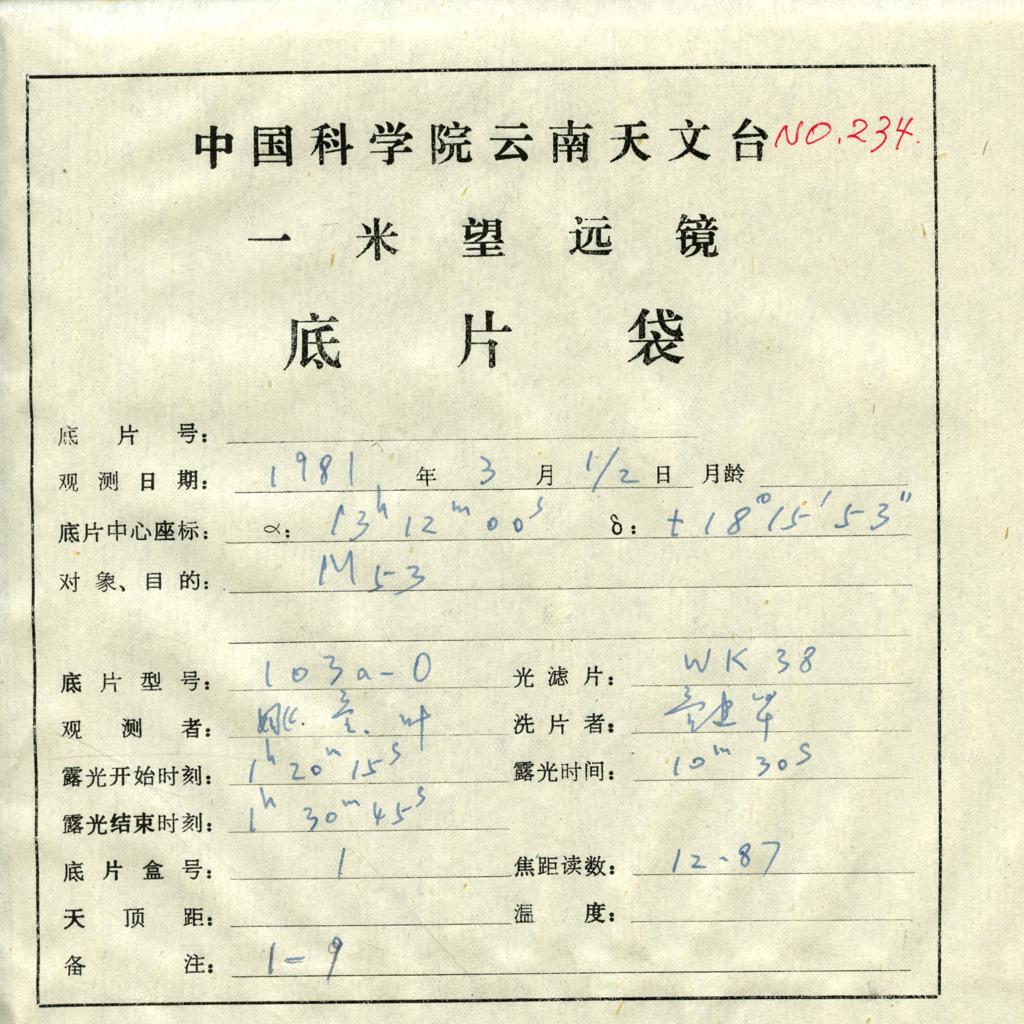 中国科学院云南天文台 NO.234.
一米望远镜
底片袋
底片号:
观测日期: 1981 年 3 月 1/2 日 月龄
底片中心座标: α: 13h 12m 00s δ: +18°15′53″
对象、目的: M53
底片型号: 103a-O 光滤片: WK 38
观测者: 姚. . 叶 洗片者:
露光开始时刻: 1h 20m 15s 露光时间: 10m 30s
露光结束时刻: 1h 30m 45s
底片盒号: 1 焦距读数: 12-87
天顶距: 温度:
备注: 1-9